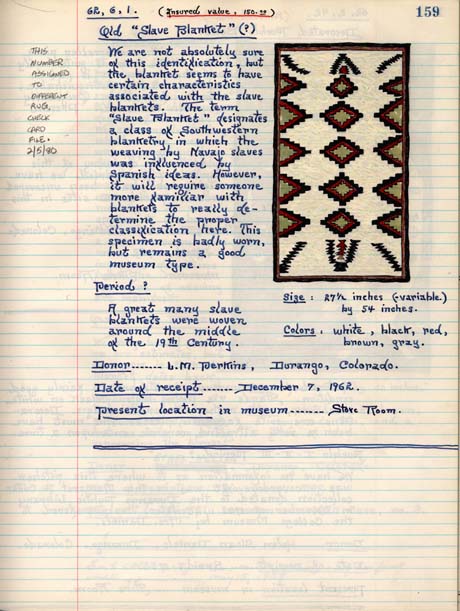 159
62, 6, 1.   (Insured value, 150.00)
Old "Slave Blanket" (?)
THIS
NUMBER
ASSIGNED
TO
DIFFERENT
RUG,
CHECK
CARD
FILE.
2/5/80
We are not absolutely sure
of this identification, but
the blanket seems to have
certain characteristics
associated with the slave
blankets. The term
"Slave Blanket" designates
a class of Southwestern
blanketry in which the
weaving by Navajo slaves
was influenced by
Spanish ideas. However,
it will require someone
more familiar with
blankets to really de-
termine the proper
classification here. This
specimen is badly worn,
but remains a good
museum type.
Period ?
A great many slave
blankets were woven
around the middle
of the 19th Century.
Size : 27½ inches (variable)
by 54 inches.
Colors : white, black, red,
brown, gray.
Donor ------- L.M. Perkins, Durango, Colorado.
Date of receipt ------- December 7, 1962.
Present location in museum ------- Store Room.